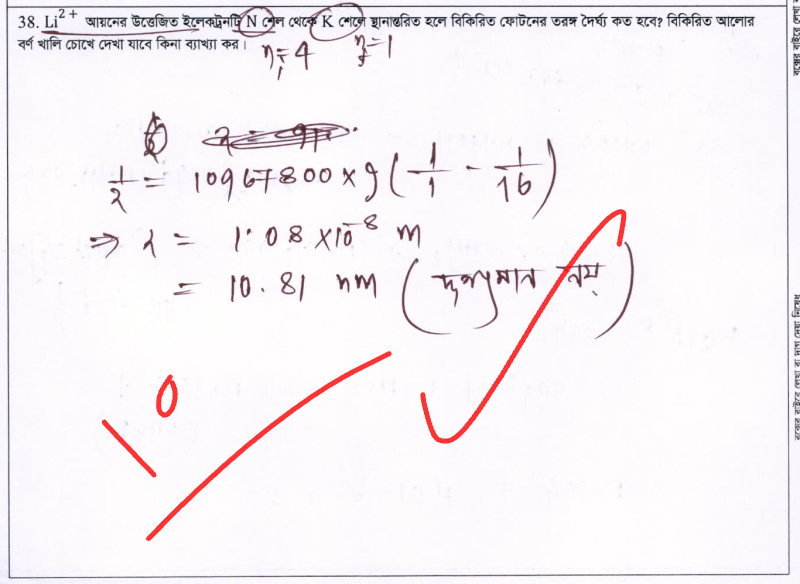 38. Li²⁺ আয়নের উত্তেজিত ইলেকট্রনটি N শেল থেকে K শেলে স্থানান্তরিত হলে বিকিরিত ফোটনের তরঙ্গ দৈর্ঘ্য কত হবে? বিকিরিত আলোর
বর্ণ খালি চোখে দেখা যাবে কিনা ব্যাখ্যা কর।
n₁=4 n₂=1
1/λ = 10967800 × 9 (1/1 - 1/16)
⇒ λ = 1.08 × 10⁻⁸ m
= 10.81 nm (দৃশ্যমান নয়)
0